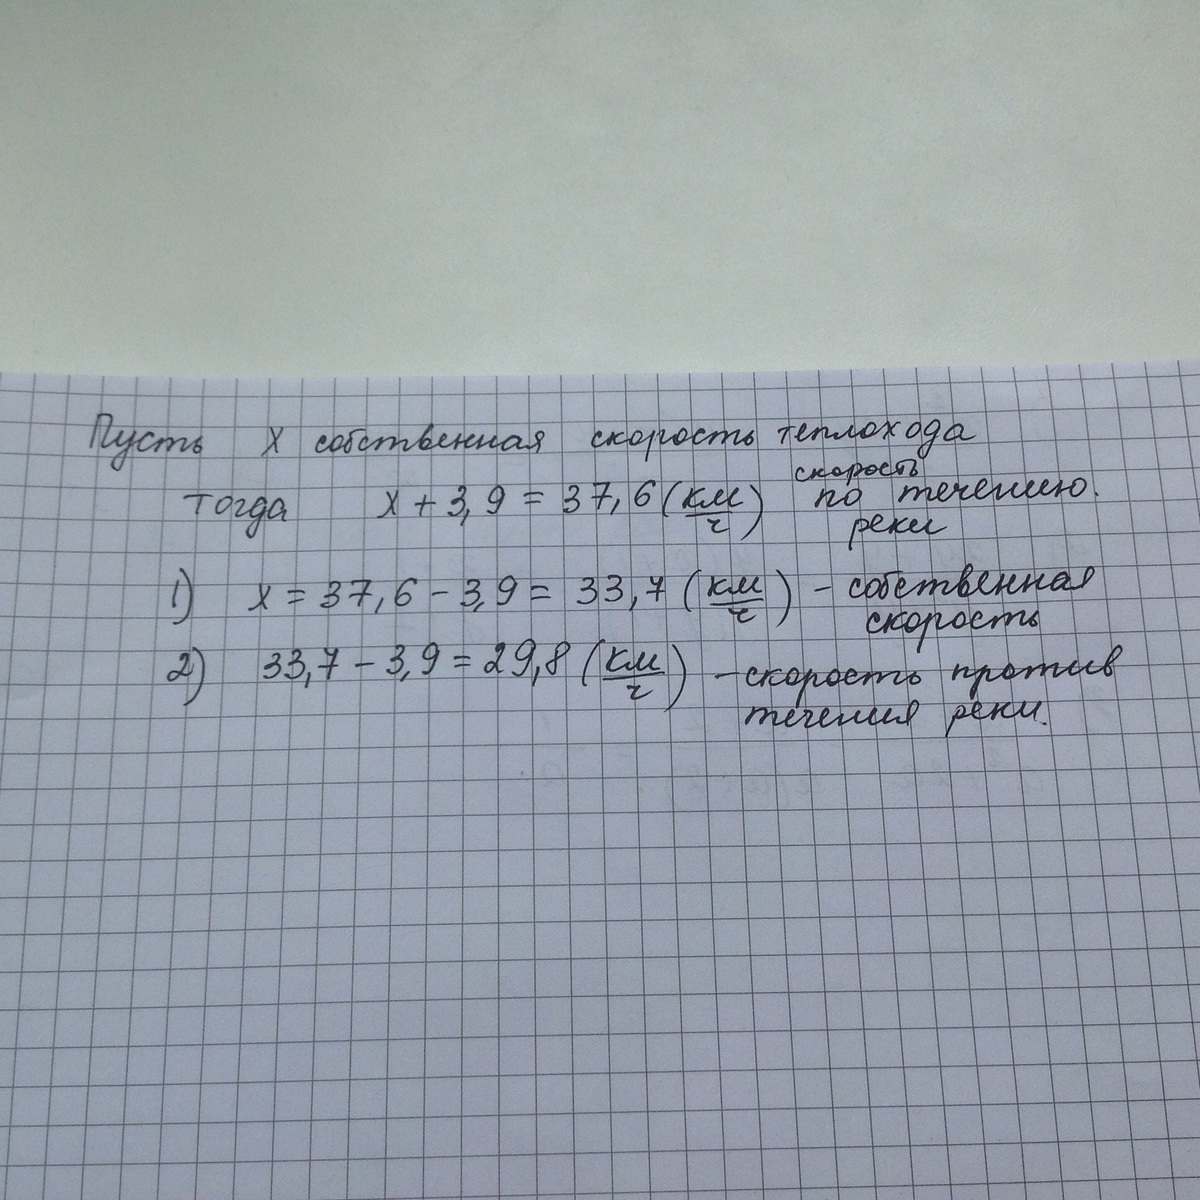 Пусть х собственная скорость теплохода
тогда х + 3,9 = 37,6 (км/ч) скорость по течению.
реки
1) х = 37,6 - 3,9 = 33,7 (км/ч) - собственная
скорость
2) 33,7 - 3,9 = 29,8 (км/ч) - скорость против
течения реки.